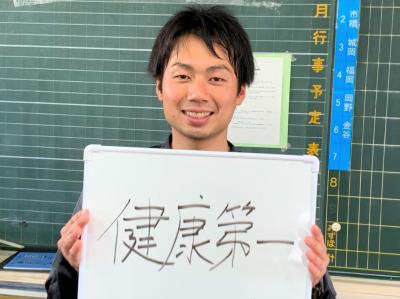 健康第一
月行事予定表
2 市橋
3 城岡
4 福岡
5 岡野
6 金谷
7
8